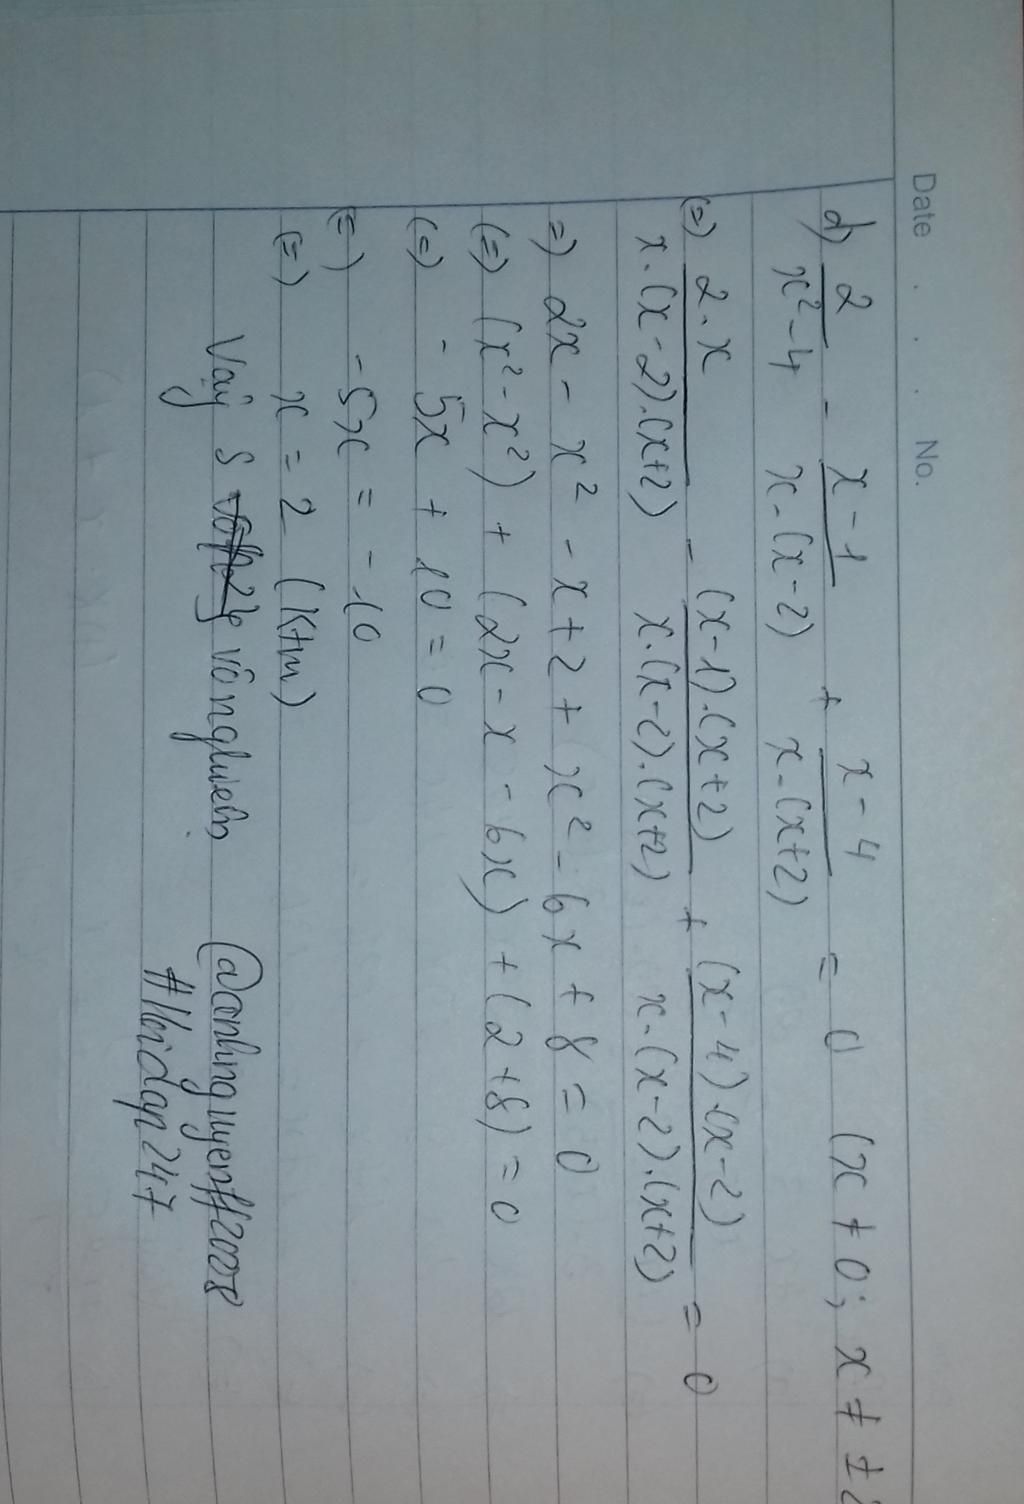 Date . . . No.
d) 2/(x²-4) - (x-1)/(x.(x-2)) + (x-4)/(x.(x+2)) = 0 (x ≠ 0; x ≠ ±2
(=) 2.x/(x.(x-2).(x+2)) - (x-1).(x+2)/(x.(x-2).(x+2)) + (x-4).(x-2)/(x.(x-2).(x+2)) = 0
=) 2x - x² - x + 2 + x² - 6x + 8 = 0
(=) (x² - x²) + (2x - x - 6x) + (2 + 8) = 0
(=) - 5x + 10 = 0
(=) -5x = -10
(=) x = 2 (ktm)
Vậy S vô nghiệm @anhnguyen#2008
#Hoidap247